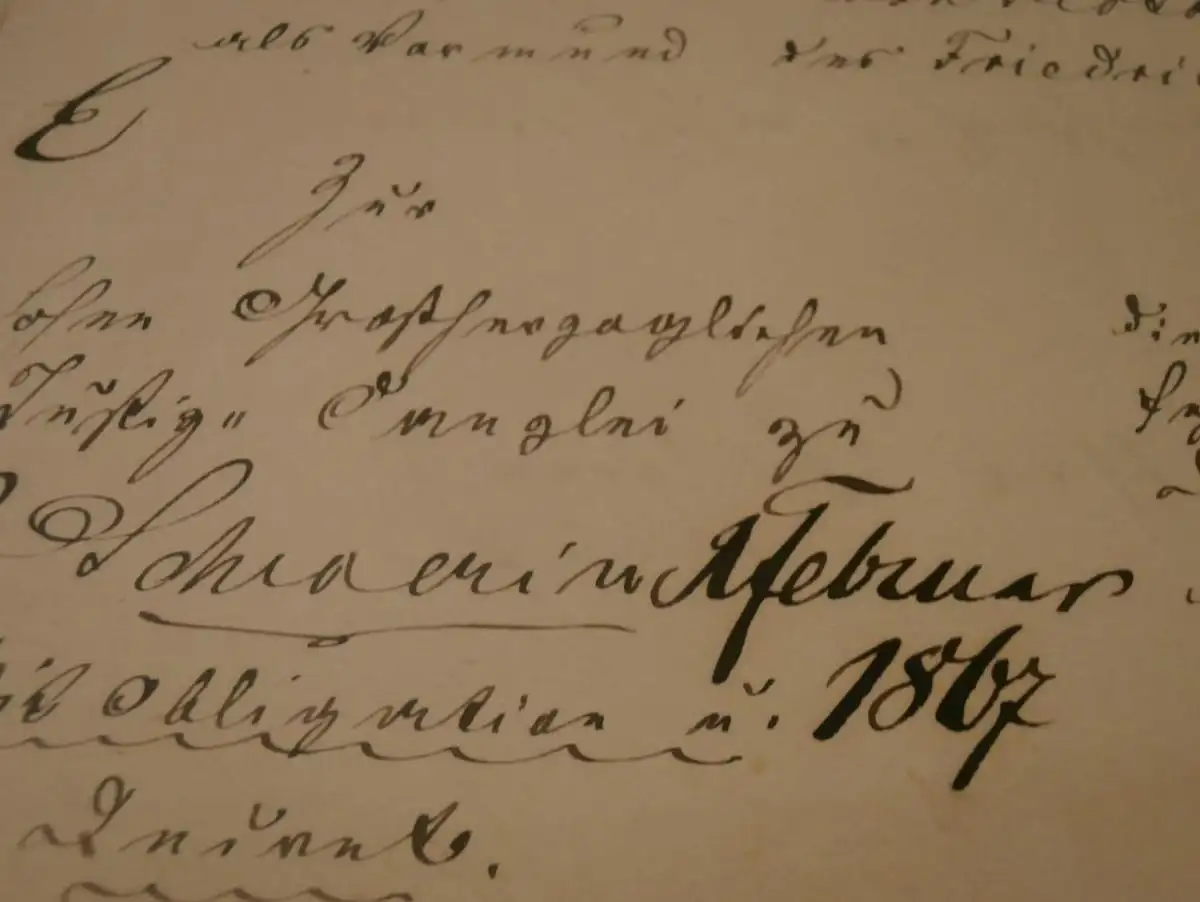 als Vormund des Friedri
E
Zur
hohen Großherzoglichen
Justiz- Canzlei zu
Schwerin Februar
1867
mit Obligation u.
Decret.